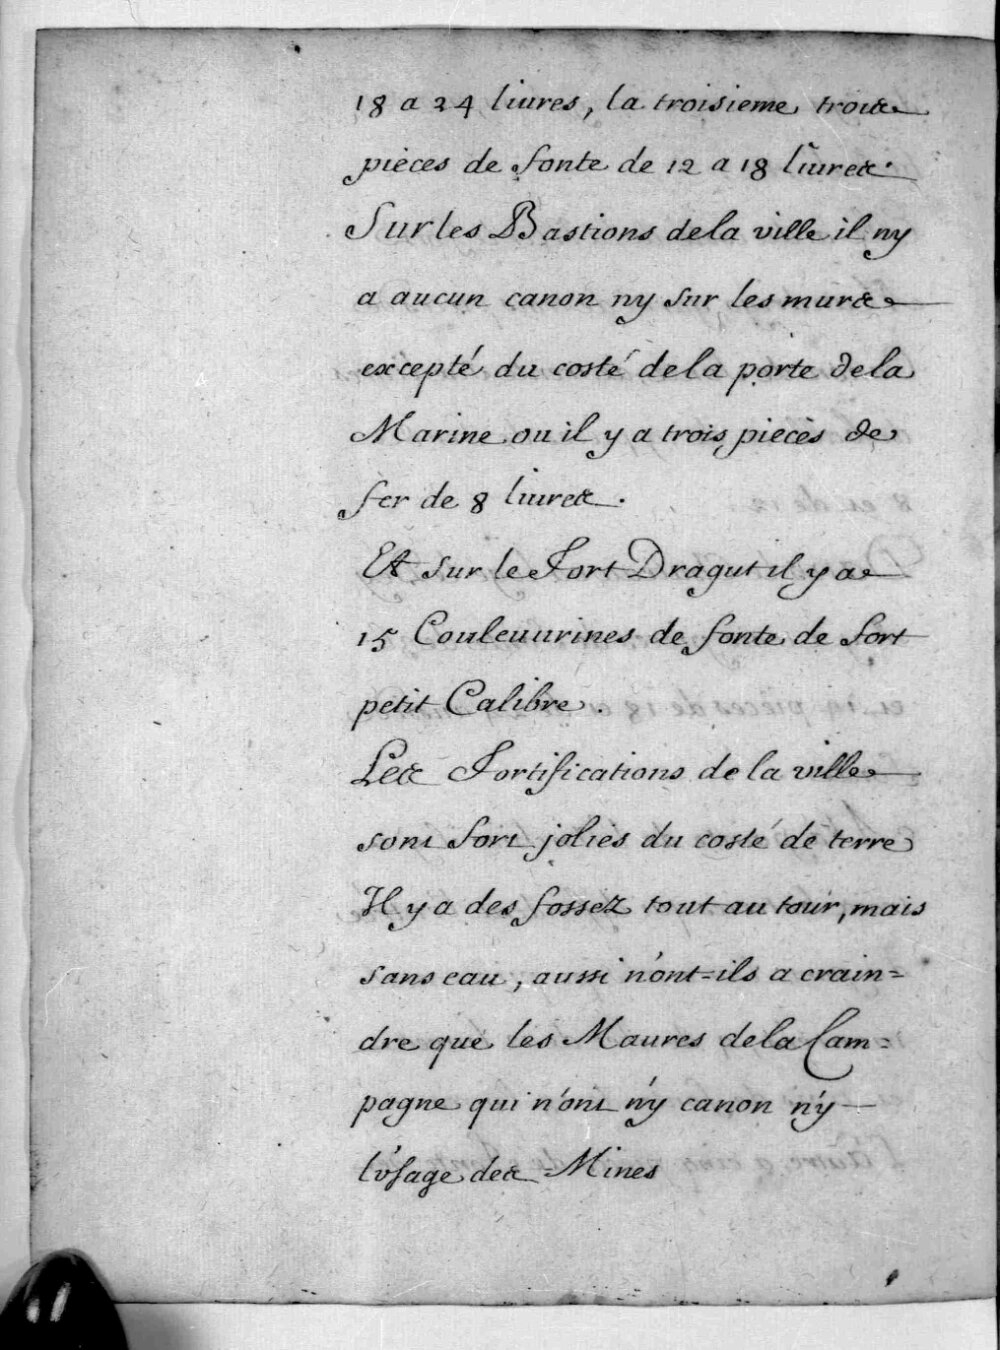 18 a 24 liures, la troisieme trois
pièces de fonte de 12 a 18 liures.
Sur les Bastions dela ville il ny
a aucun canon ny sur les murs
excepté du costé dela porte dela
Marine ou il y a trois pieces de
fer de 8 liures.
Et sur le Fort Dragut il y a
15 Couleuurines de fonte de fort
petit Calibre.
Les Fortifications de la ville
sont fort jolies du costé de terre
Il y a des fossez tout au tour, mais
sans eau, aussi n'ont=ils a crain=
dre que les Maures dela Cam=
pagne qui n'ont n'y canon n'y
l'vsage des Mines